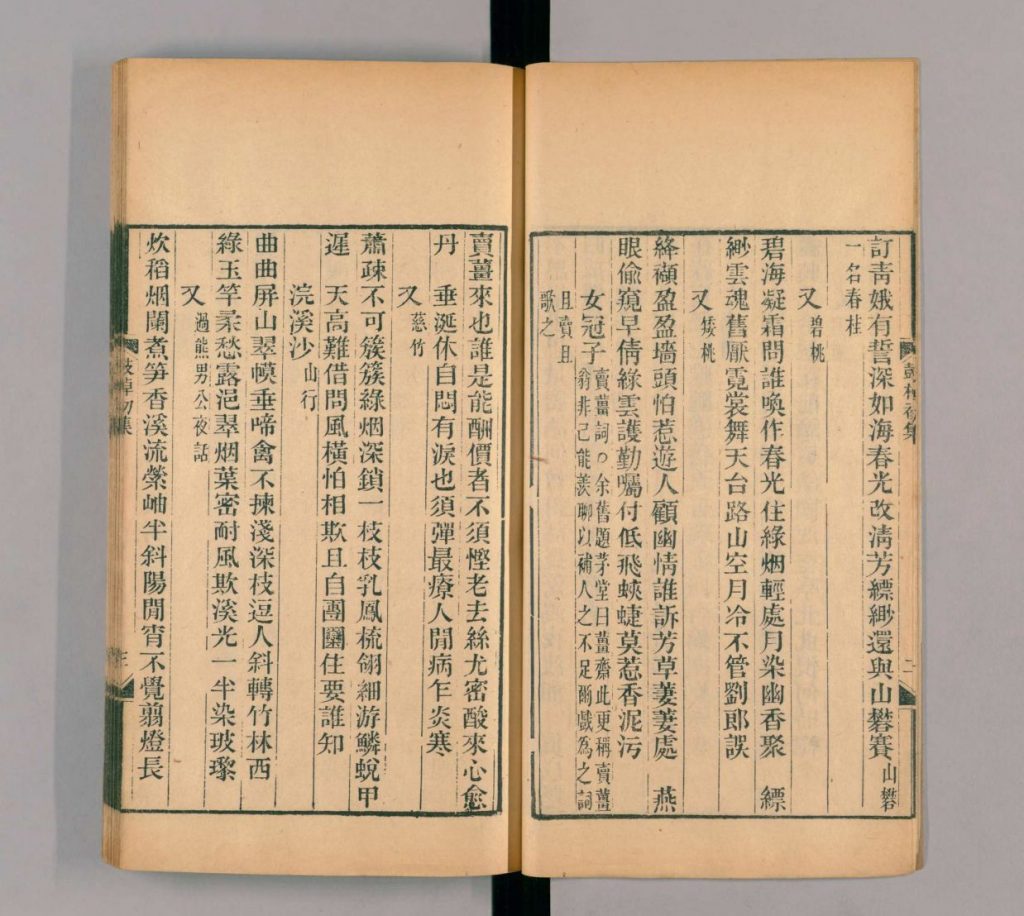 訂靑娥有誓深如海春光改淸芳縹緲還與山礬賽山礬
一名春桂
又碧桃
碧海凝霜問誰喚作春光住綠烟輕處月染幽香聚　縹
緲雲魂舊厭霓裳舞天台路山空月冷不管劉郎誤
又矮桃
絳纈盈盈墻頭怕惹遊人顧幽情誰訴芳草萋萋處　燕
眼偷窺早倩綠雲護勤囑付低飛蛺蜨莫惹香泥污
女冠子賣薑詞○余舊題茅堂曰薑齋此更稱賣薑
翁非己能羨聊以補人之不足爾戲為之詞
且賣且
歌之
鼓棹初集
二
賣薑來也誰是能酬價者不須慳老去絲尤密酸來心愈
丹　垂涎休自悶有淚也須彈最療人閒病乍炎寒
又慈竹
蕭疎不可簇簇綠烟深鎖一枝枝乳鳳梳翎細游鱗蛻甲
遲　天高難借問風橫怕相欺且自團圞住要誰知
浣溪沙山行
曲曲屏山翠幙垂啼禽不揀淺深枝逗人斜轉竹林西
綠玉竿柔愁露浥翠烟葉密耐風欺溪光一半染玻瓈
又過熊男公夜話
炊稻烟闌煮笋香溪流縈岫半斜陽閒宵不覺翦燈長
鼓棹初集